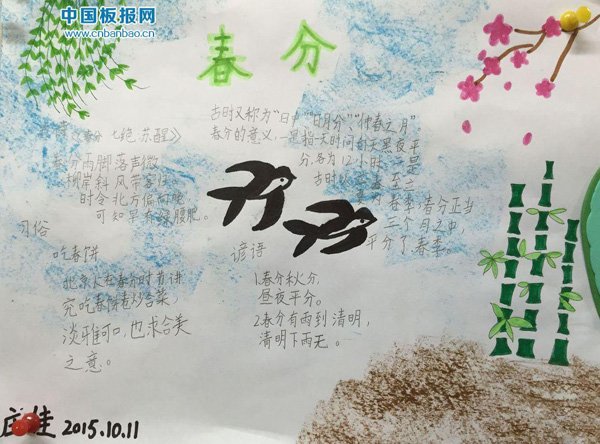 中国板报网
www.cnbanbao.cn
春分
古时又称为“日中”“日月分”“仲春之月”。
春分的意义，一是指一天时间白天黑夜平
分，各为12小时，二是
古时以
春季，春分正当
三个月之中，
平分了春季。
七绝 苏醒》
春分雨脚落声微
柳岸斜风带客归
时令北方偏向晚
可知早有绿腰肥。
习俗
吃春饼
北京人在春分时节讲
究吃春饼卷炒合菜，
淡雅可口，也求合美
之意。
谚语
1.春分秋分，
昼夜平分。
2.春分有雨到清明，
清明下雨无。
2015.10.11